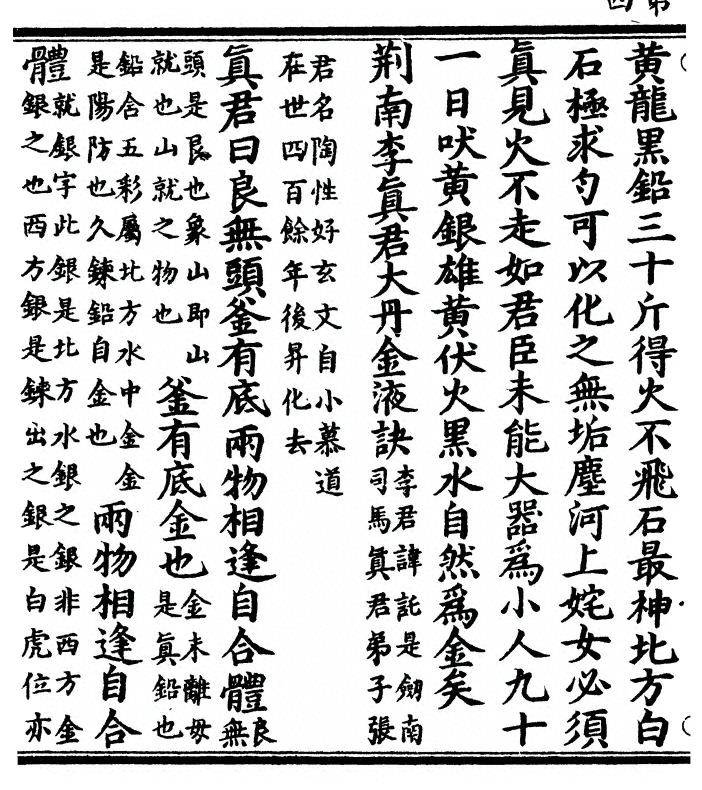 黄龍黒鉛三十斤得火不飛石最神北方白
石極求勺可以化之無垢塵河上姹女必須
眞見火不走如君臣未能大器爲小人九十
一日吠黄銀雄黄伏火黒水自然爲金矣
荆南李眞君大丹金液訣李君諱託是劒南司馬眞君弟子張
君名陶性好玄文自小慕道
在世四百餘年後昇化去
眞君曰良無頭釜有底兩物相逢自合體良無
頭是艮也象山即山就也山就之物也釜有底金也金未離毋是眞鉛也
鉛含五彩屬北方水中金金是陽防也久鍊鉛自金也兩物相逢自合
體就銀字此銀是北方水銀之銀非西方金銀之也西方銀是鍊出之銀是白虎位亦